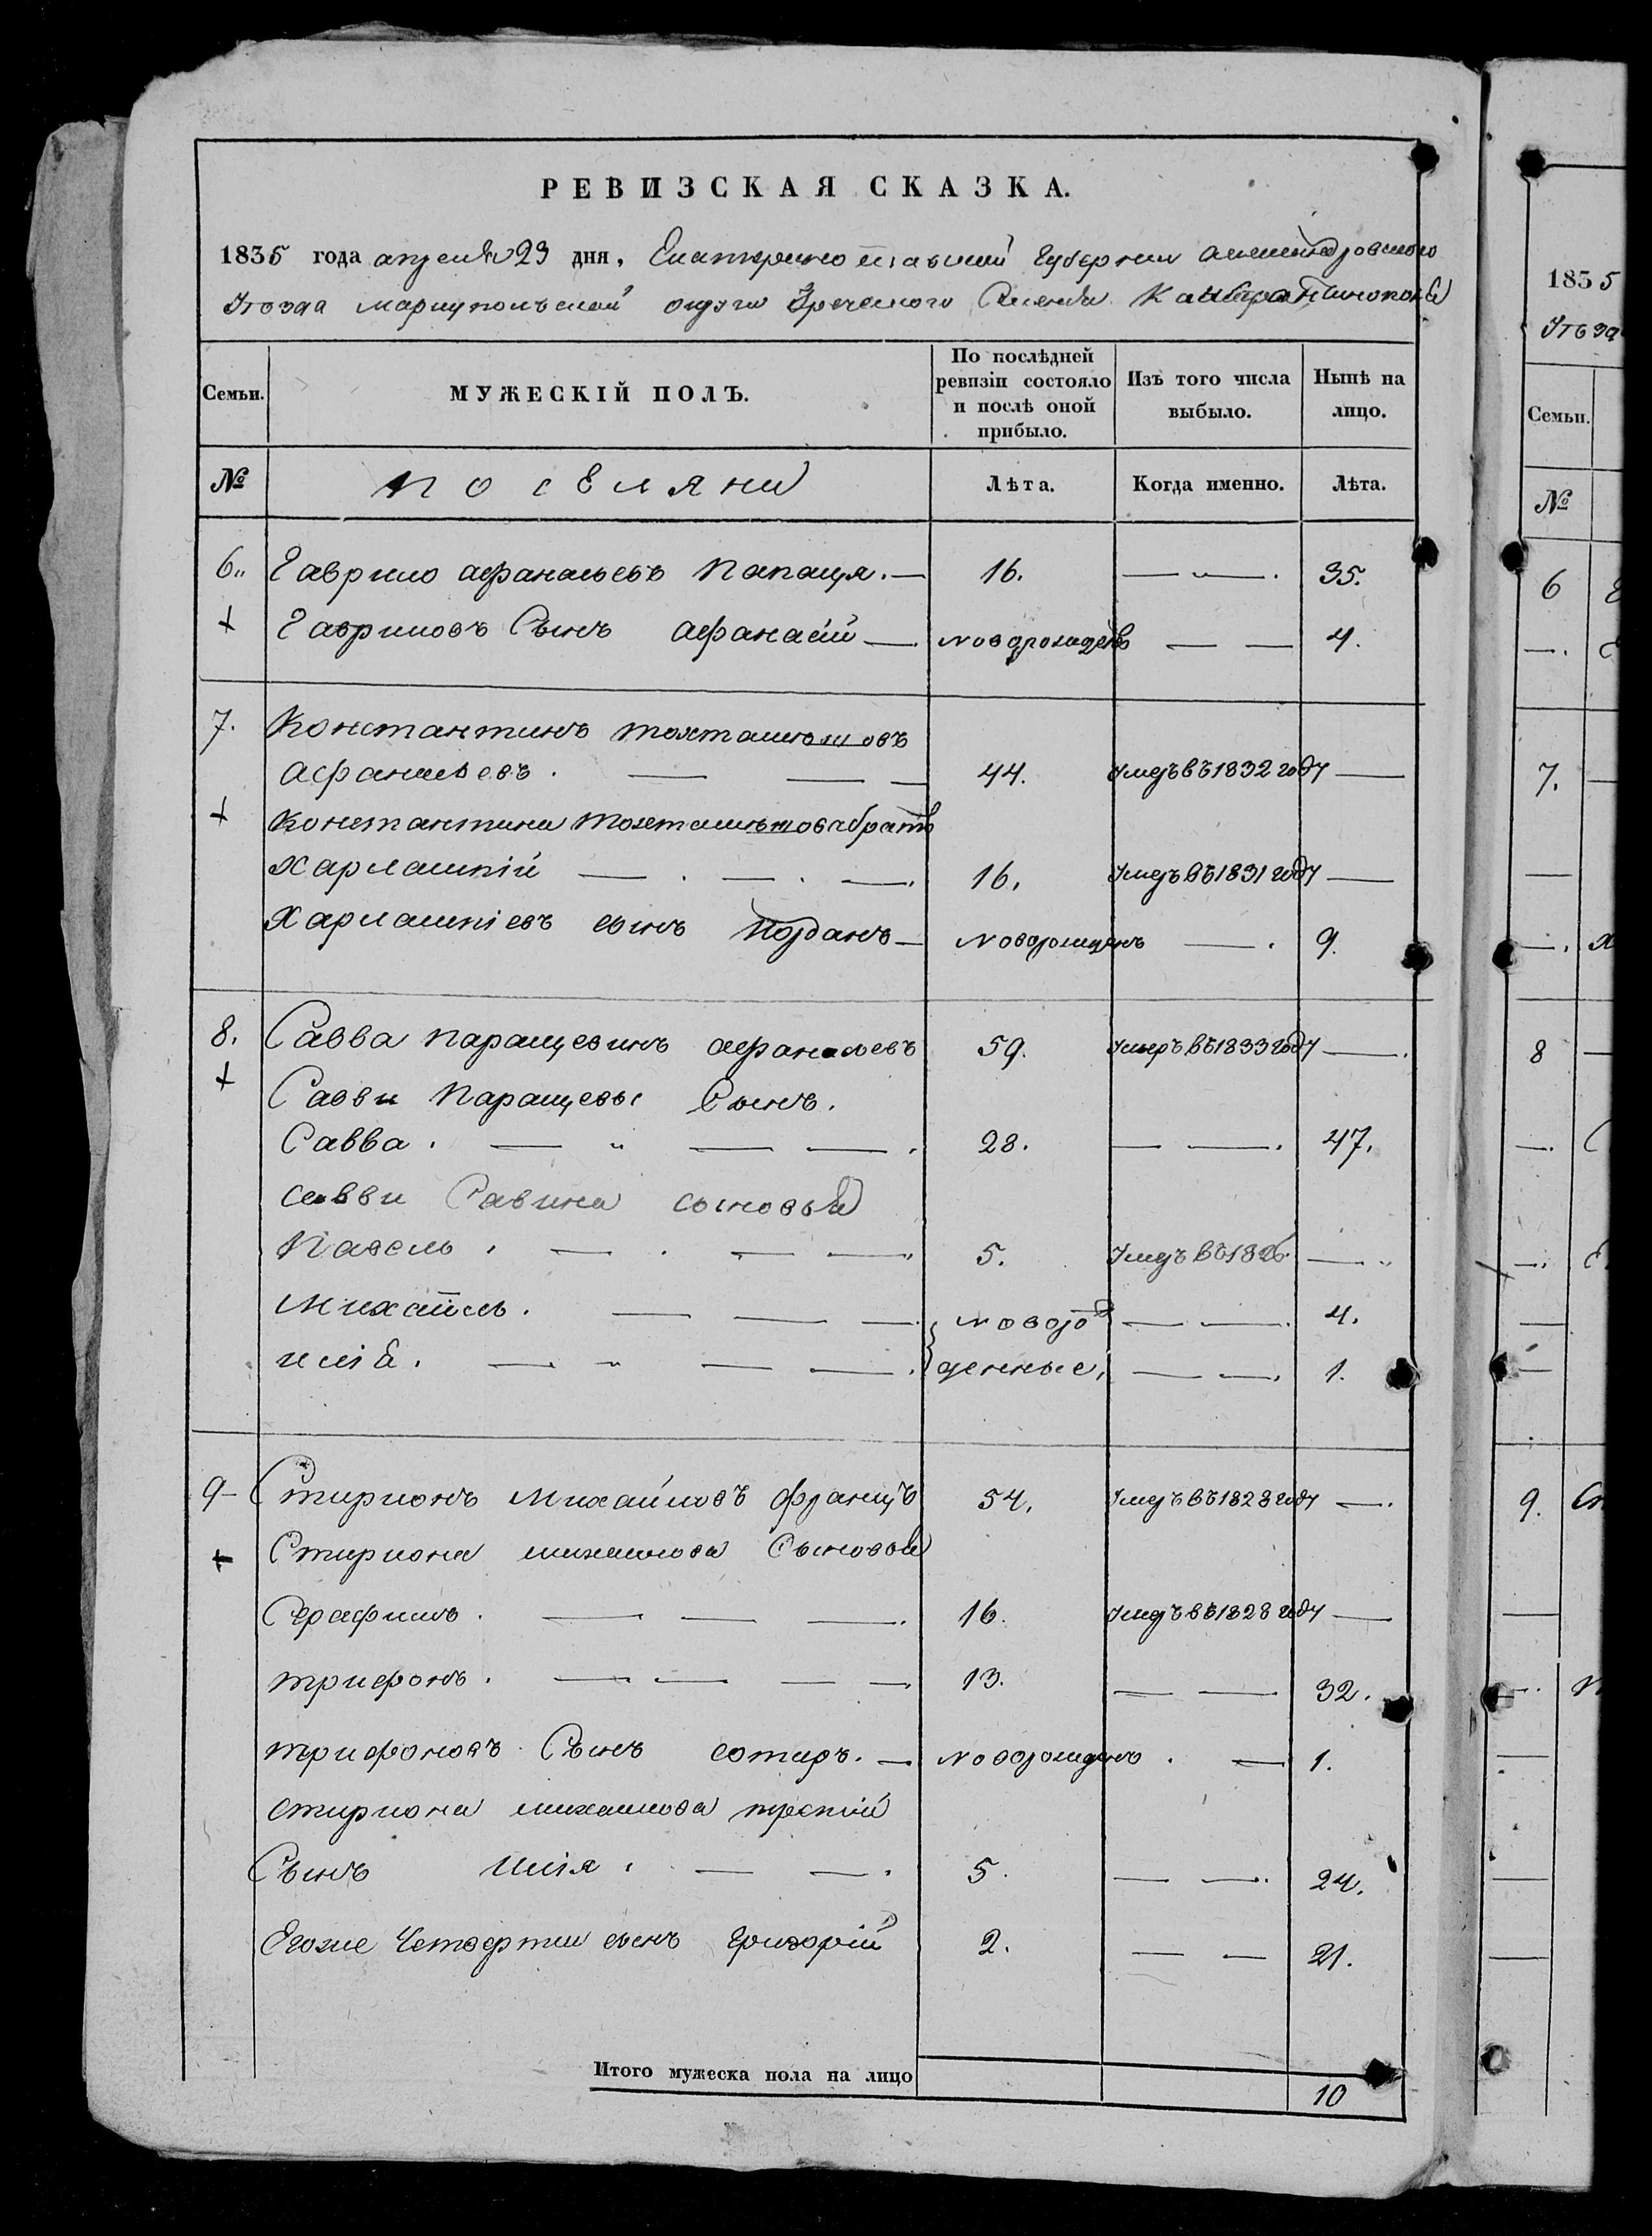 РЕВИЗСКАЯ СКАЗКА.
1835 года апреля 23 дня, Екатеринославской Губернии Александровского
Уѣзда Мариупольской округи Греческого Селенія Константинополя
Семьи.
МУЖЕСКІЙ ПОЛЪ.
По послѣдней ревизіи состояло и послѣ оной прибыло.
Изъ того числа выбыло.
Нынѣ на лицо.
№ Поселяни Лѣта. Когда именно. Лѣта.
6. Гаврило афанасьевъ Папаця. 16. 35.
Гавриловъ Сынъ афанасій новорожденъ 4.
7. Константинъ
афанасьевъ. 44. Умеръ въ 1832 году
Константина братъ
Харлампій 16. Умеръ въ 1831 году
Харлампіевъ сынъ Иорданъ новорожденъ 9.
8. Савва афанасьевъ 59. Умеръ въ 1833 году
Савви Сынъ.
Савва. 28. 47.
Савви Савина сыновья
Павелъ. 5. Умеръ въ 1826.
Михаилъ. новорож 4.
илія. денные. 1.
9 Стирионъ Михайловъ францъ 54. Умеръ въ 1828 году
Стириона михайлова Сыновья
Серафимъ. 16. Умеръ въ 1828 году
трифонъ. 13. 32.
трифоновъ Сынъ сотиръ. новорожденъ. 1.
стириона михайлова третій
Сынъ илія. 5. 24.
Егоже Четвертий сынъ Григорій 2. 21.
Итого мужеска пола на лицо 10
1835
Уѣзд
Семьи.
№
6
7.
8
9. Ст